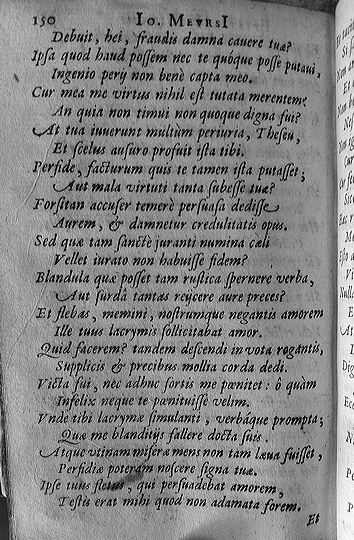 150 Io. MEVRSI
Debuit, hei, fraudis damna cavere tuæ?
Ipsa quod haud possem nec te quoque posse putavi,
Ingenio perij non benè capta meo.
Cur mea me virtus nihil est tutata merentem?
An quia non timui non quoque digna fui?
At tua iuverunt multùm periuria, Theseu,
Et scelus ausuro profuit ista tibi.
Perfide, facturum quis te tamen ista putasset;
Aut mala virtuti tanta subesse tuæ?
Forsitan accuser temerè persuasa dedisse
Aurem, & damnetur credulitatis opus.
Sed quæ tam sanctè iuranti numina cæli
Vellet iurato non habuisse fidem?
Blandula quæ posset tam rustica spernere verba,
Aut surda tantas reijcere aure preces?
Et flebas, memini, nostrumque negantis amorem
Ille tuus lacrymis sollicitabat amor.
Quid facerem? tandem descendi in vota rogantis,
Supplicis & precibus mollia corda dedi.
Victa fui, nec adhuc fortis me pœnitet: ô quàm
Infelix neque te pœnituisse velim.
Vnde tibi lacrymæ simulanti, verbáque prompta;
Quæ me blanditijs fallere docta suis.
Atque utinam miseræ mens non tam læva fuisset,
Perfidiæ poteram noscere signa tuæ.
Ipse tuus fletus, qui persuadebat amorem,
Testis erat mihi quod non adamata forem.
Et